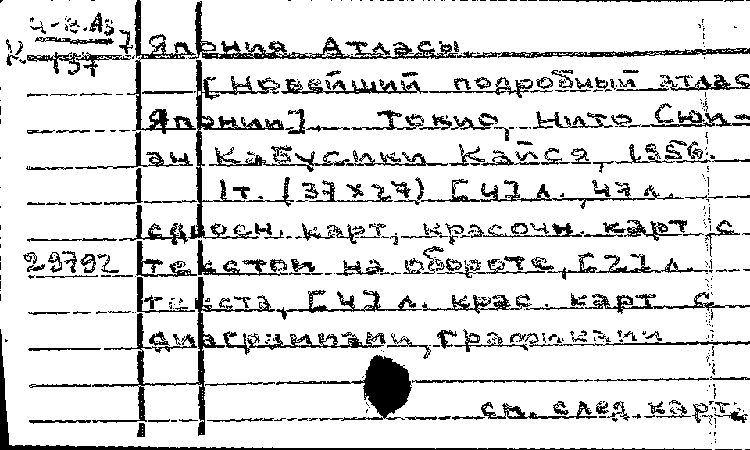 К 4-В.Аз/137 7 Япония Атласы.
[Новейший подробный атлас
Японии]. Токио, Нито Сюп-
ан Кабусики Кайся, 1956.
1т. (37х27) [4] л., 47 л.
сдвоен. карт, красочн. карт с
29792 текстом на обороте, [2] л.
текста, [4] л. крас. карт с
диаграммами, графиками
см. след. карт.